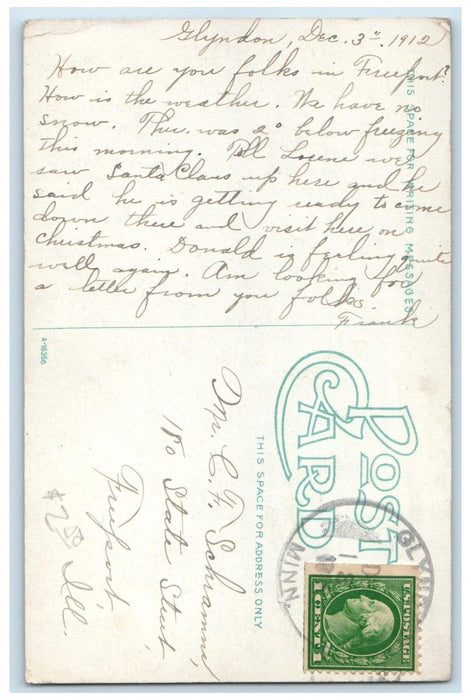 Glyndon, Dec. 3rd, 1912
How are you folks in Freeport?
How is the weather. We have no
snow. Ther. was 2° below freezing
this morning. Tell Lorene we
saw Santa Claus up here and he
said he is getting ready to come
down there and visit here on
Christmas. Donald is feeling quite
well again. Am looking for
a letter from you folks
Frank
THIS SPACE FOR WRITING MESSAGES
A-16356
POST
CARD
THIS SPACE FOR ADDRESS ONLY
Mr. C. F. Schramm,
180 State Street,
Freeport
Ill.
GLYNDON
MINN.
U.S. POSTAGE
1 CENT 1